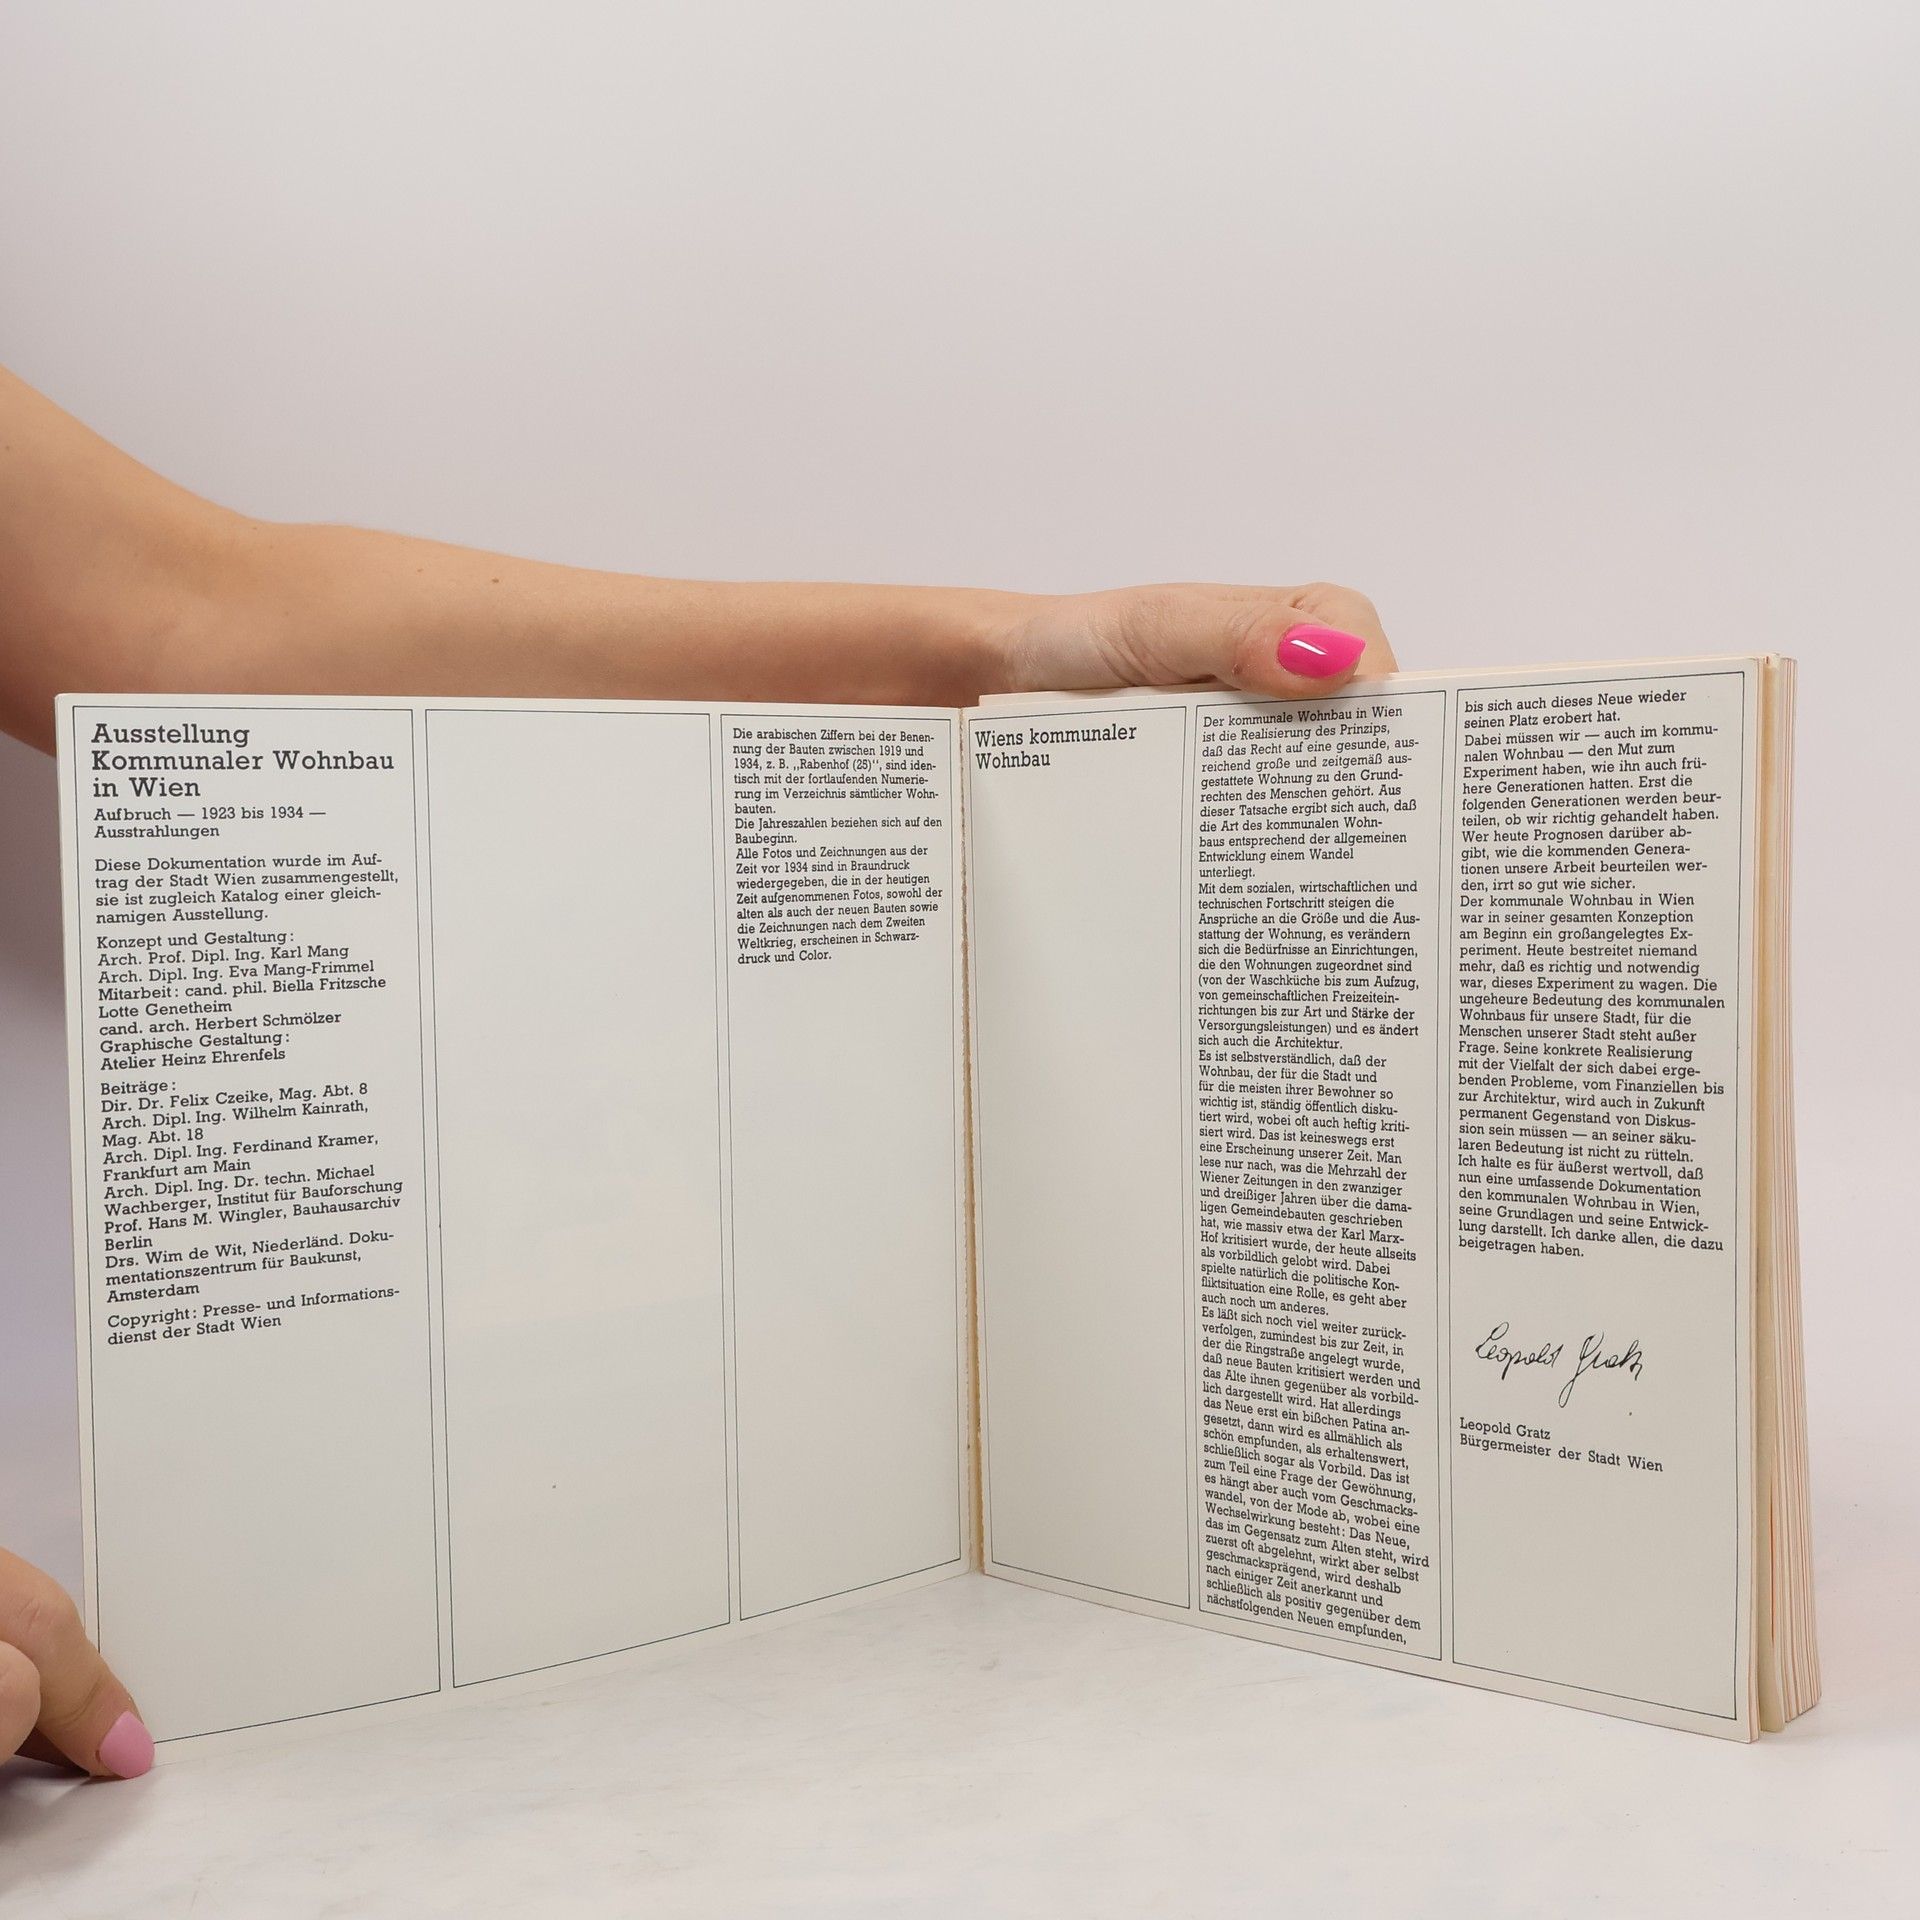 Ausstellung
Kommunaler Wohnbau
in Wien
Aufbruch — 1923 bis 1934 —
Ausstrahlungen
Diese Dokumentation wurde im Auf-
trag der Stadt Wien zusammengestellt,
sie ist zugleich Katalog einer gleich-
namigen Ausstellung.
Konzept und Gestaltung:
Arch. Prof. Dipl. Ing. Karl Mang
Arch. Dipl. Ing. Eva Mang-Frimmel
Mitarbeit: cand. phil. Biella Fritzsche
Lotte Genetheim
cand. arch. Herbert Schmölzer
Graphische Gestaltung:
Atelier Heinz Ehrenfels
Beiträge:
Dir. Dr. Felix Czeike, Mag. Abt. 8
Arch. Dipl. Ing. Wilhelm Kainrath,
Mag. Abt. 18
Arch. Dipl. Ing. Ferdinand Kramer,
Frankfurt am Main
Arch. Dipl. Ing. Dr. techn. Michael
Wachberger, Institut für Bauforschung
Prof. Hans M. Wingler, Bauhausarchiv
Berlin
Drs. Wim de Wit, Niederländ. Doku-
mentationszentrum für Baukunst,
Amsterdam
Copyright: Presse- und Informations-
dienst der Stadt Wien
Die arabischen Ziffern bei der Benen-
nung der Bauten zwischen 1919 und
1934, z. B. „Rabenhof (25)“, sind iden-
tisch mit der fortlaufenden Numerie-
rung im Verzeichnis sämtlicher Wohn-
bauten.
Die Jahreszahlen beziehen sich auf den
Baubeginn.
Alle Fotos und Zeichnungen aus der
Zeit vor 1934 sind in Braundruck
wiedergegeben, die in der heutigen
Zeit aufgenommenen Fotos, sowohl der
alten als auch der neuen Bauten sowie
die Zeichnungen nach dem Zweiten
Weltkrieg, erscheinen in Schwarz-
druck und Color.
Wiens kommunaler
Wohnbau
Der kommunale Wohnbau in Wien
ist die Realisierung des Prinzips,
daß das Recht auf eine gesunde, aus-
reichend große und zeitgemäß aus-
gestattete Wohnung zu den Grund-
rechten des Menschen gehört. Aus
dieser Tatsache ergibt sich auch, daß
die Art des kommunalen Wohn-
baus entsprechend der allgemeinen
Entwicklung einem Wandel
unterliegt.
Mit dem sozialen, wirtschaftlichen und
technischen Fortschritt steigen die
Ansprüche an die Größe und die Aus-
stattung der Wohnung, es verändern
sich die Bedürfnisse an Einrichtungen,
die den Wohnungen zugeordnet sind
(von der Waschküche bis zum Aufzug,
von gemeinschaftlichen Freizeitein-
richtungen bis zur Art und Stärke der
Versorgungsleistungen) und es ändert
sich auch die Architektur.
Es ist selbstverständlich, daß der
Wohnbau, der für die Stadt und
für die meisten ihrer Bewohner so
wichtig ist, ständig öffentlich disku-
tiert wird, wobei oft auch heftig kriti-
siert wird. Das ist keineswegs erst
eine Erscheinung unserer Zeit. Man
lese nur nach, was die Mehrzahl der
Wiener Zeitungen in den zwanziger
und dreißiger Jahren über die dama-
ligen Gemeindebauten geschrieben
hat, wie massiv etwa der Karl Marx-
Hof kritisiert wurde, der heute allseits
als vorbildlich gelobt wird. Dabei
spielte natürlich die politische Kon-
fliktsituation eine Rolle, es geht aber
auch noch um anderes.
Es läßt sich noch viel weiter zurück-
verfolgen, zumindest bis zur Zeit, in
der die Ringstraße angelegt wurde,
daß neue Bauten kritisiert werden und
das Alte ihnen gegenüber als vorbild-
lich dargestellt wird. Hat allerdings
das Neue erst ein bißchen Patina an-
gesetzt, dann wird es allmählich als
schön empfunden, als erhaltenswert,
schließlich sogar als Vorbild. Das ist
zum Teil eine Frage der Gewöhnung,
es hängt aber auch vom Geschmacks-
wandel, von der Mode ab, wobei eine
Wechselwirkung besteht: Das Neue,
das im Gegensatz zum Alten steht, wird
zuerst oft abgelehnt, wirkt aber selbst
geschmacksprägend, wird deshalb
nach einiger Zeit anerkannt und
schließlich als positiv gegenüber dem
nächstfolgenden Neuen empfunden,
bis sich auch dieses Neue wieder
seinen Platz erobert hat.
Dabei müssen wir — auch im kommu-
nalen Wohnbau — den Mut zum
Experiment haben, wie ihn auch frü-
here Generationen hatten. Erst die
folgenden Generationen werden beur-
teilen, ob wir richtig gehandelt haben.
Wer heute Prognosen darüber ab-
gibt, wie die kommenden Genera-
tionen unsere Arbeit beurteilen wer-
den, irrt so gut wie sicher.
Der kommunale Wohnbau in Wien
war in seiner gesamten Konzeption
am Beginn ein großangelegtes Ex-
periment. Heute bestreitet niemand
mehr, daß es richtig und notwendig
war, dieses Experiment zu wagen. Die
ungeheure Bedeutung des kommunalen
Wohnbaus für unsere Stadt, für die
Menschen unserer Stadt steht außer
Frage. Seine konkrete Realisierung
mit der Vielfalt der sich dabei erge-
benden Probleme, vom Finanziellen bis
zur Architektur, wird auch in Zukunft
permanent Gegenstand von Diskus-
sion sein müssen — an seiner säku-
laren Bedeutung ist nicht zu rütteln.
Ich halte es für äußerst wertvoll, daß
nun eine umfassende Dokumentation
den kommunalen Wohnbau in Wien,
seine Grundlagen und seine Entwick-
lung darstellt. Ich danke allen, die dazu
beigetragen haben.
Leopold Gratz
Leopold Gratz
Bürgermeister der Stadt Wien